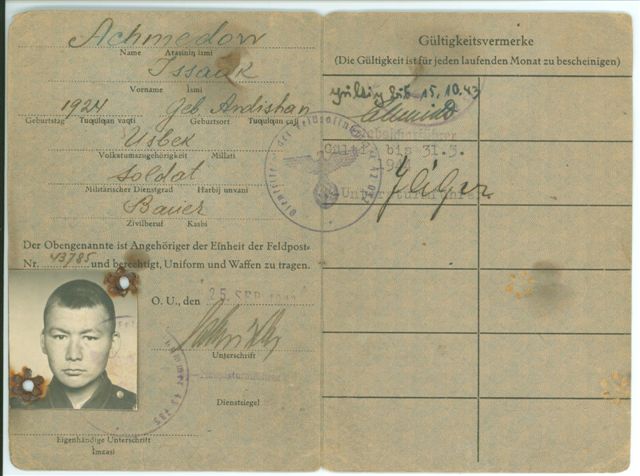 Achmedow
Name Atasinin ismi
Issaak
Vorname Ismi
1924 Geb Andishan
Geburtstag Tuqulqan vaqti Geburtsort Tuquïqan çaji
Usbek
Volkstumszugehörigkeit Millati
Soldat
Militärischer Dienstgrad Harbij unvani
Bauer
Zivilberuf Kasbi
Der Obengenannte ist Angehöriger der Einheit der Feldpost-
Nr. 43785 und berechtigt, Uniform und Waffen zu tragen.
O. U., den 25. SEP.
Unterschrift
Dienstsiegel
Eigenhändige Unterschrift
Imzasi
Gültigkeitsvermerke
(Die Gültigkeit ist für jeden laufenden Monat zu bescheinigen)
gültig bis 15.10.43
bis 31.3.
Untersturmführer